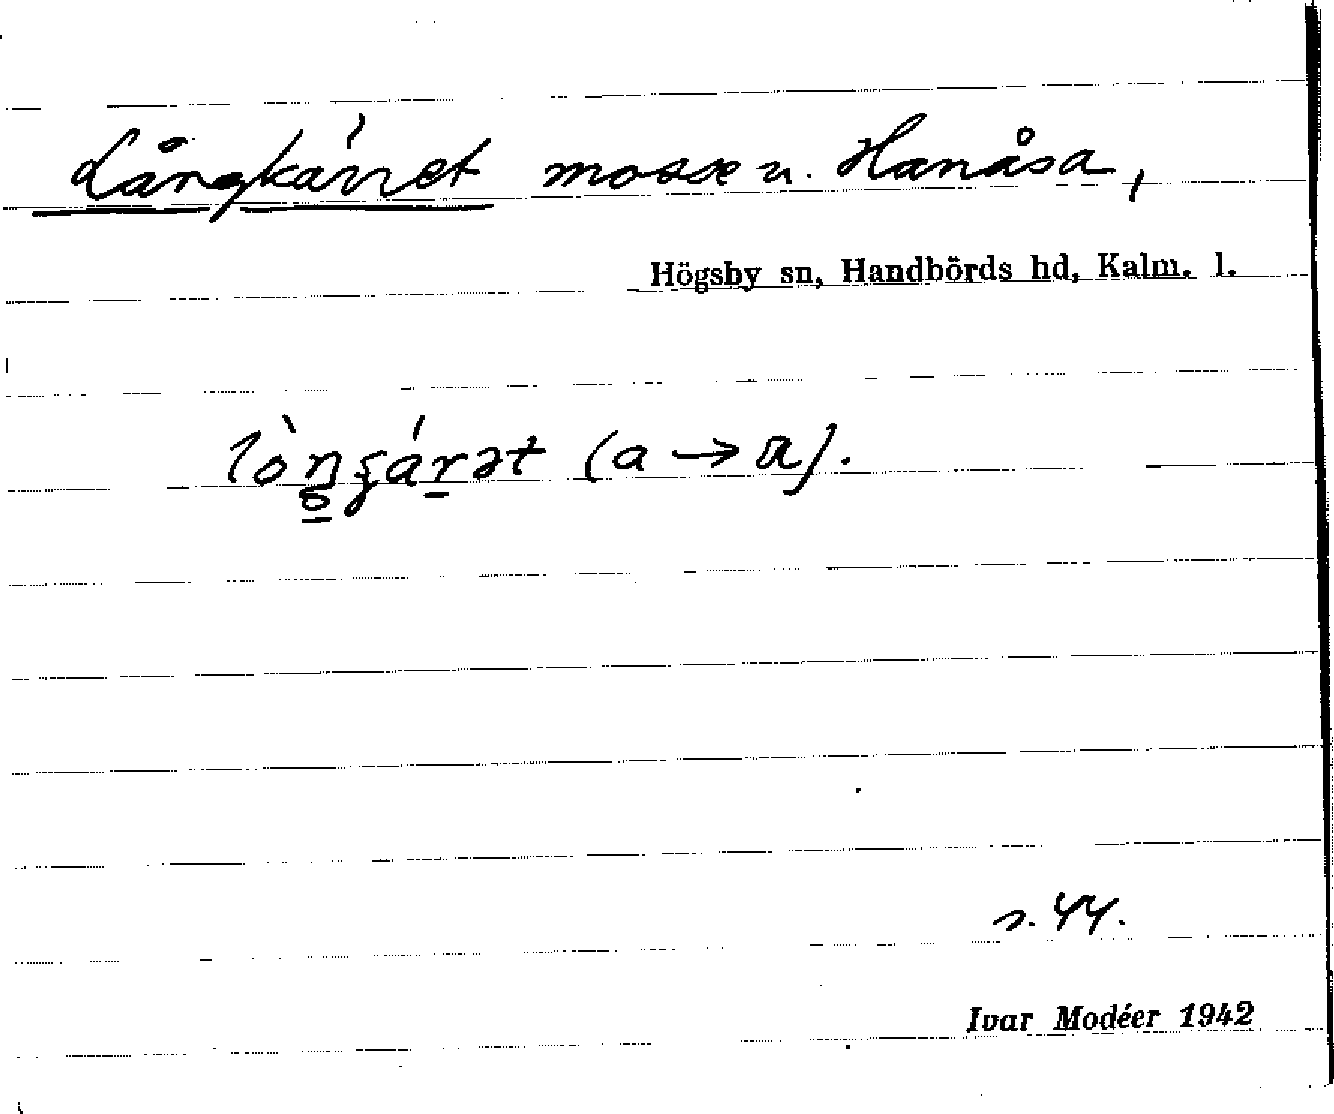 Långkärret mosse u. Hanåsa,
Högsby sn, Handbörds hd, Kalm. l.
(a → a).
s. 44.
Ivar Modéer 1942